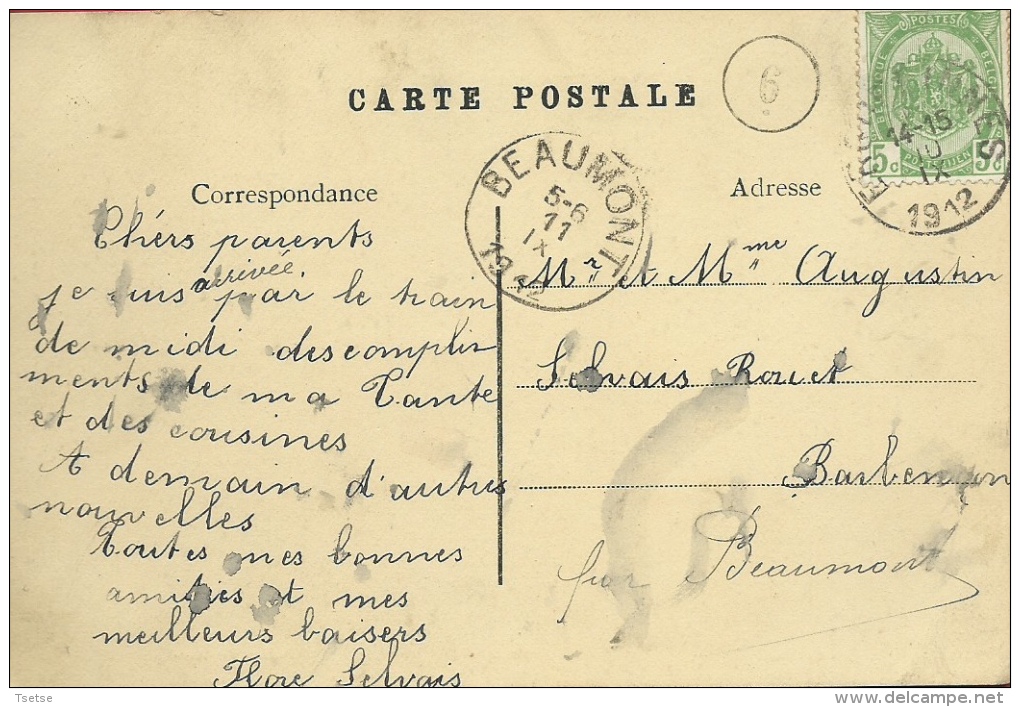 CARTE POSTALE
6
POSTES
BELGIQUE
BELGIE
5c
POSTERIJEN
5c
14-15
IX
1912
BEAUMONT
5-6
11
IX
1912
Correspondance
Adresse
Chérs parents
je suis arrivée par le train
de midi des complin
ments de ma Tante
et des cousines
A demain d'autres
nouvelles
Toutes mes bonnes
amitiés et mes
meilleurs baisers
Flore Selvais
Mr et Mme Augustin
Selvais Rouet
Barbençon
par Beaumont
Tsetse
www.delcampe.net